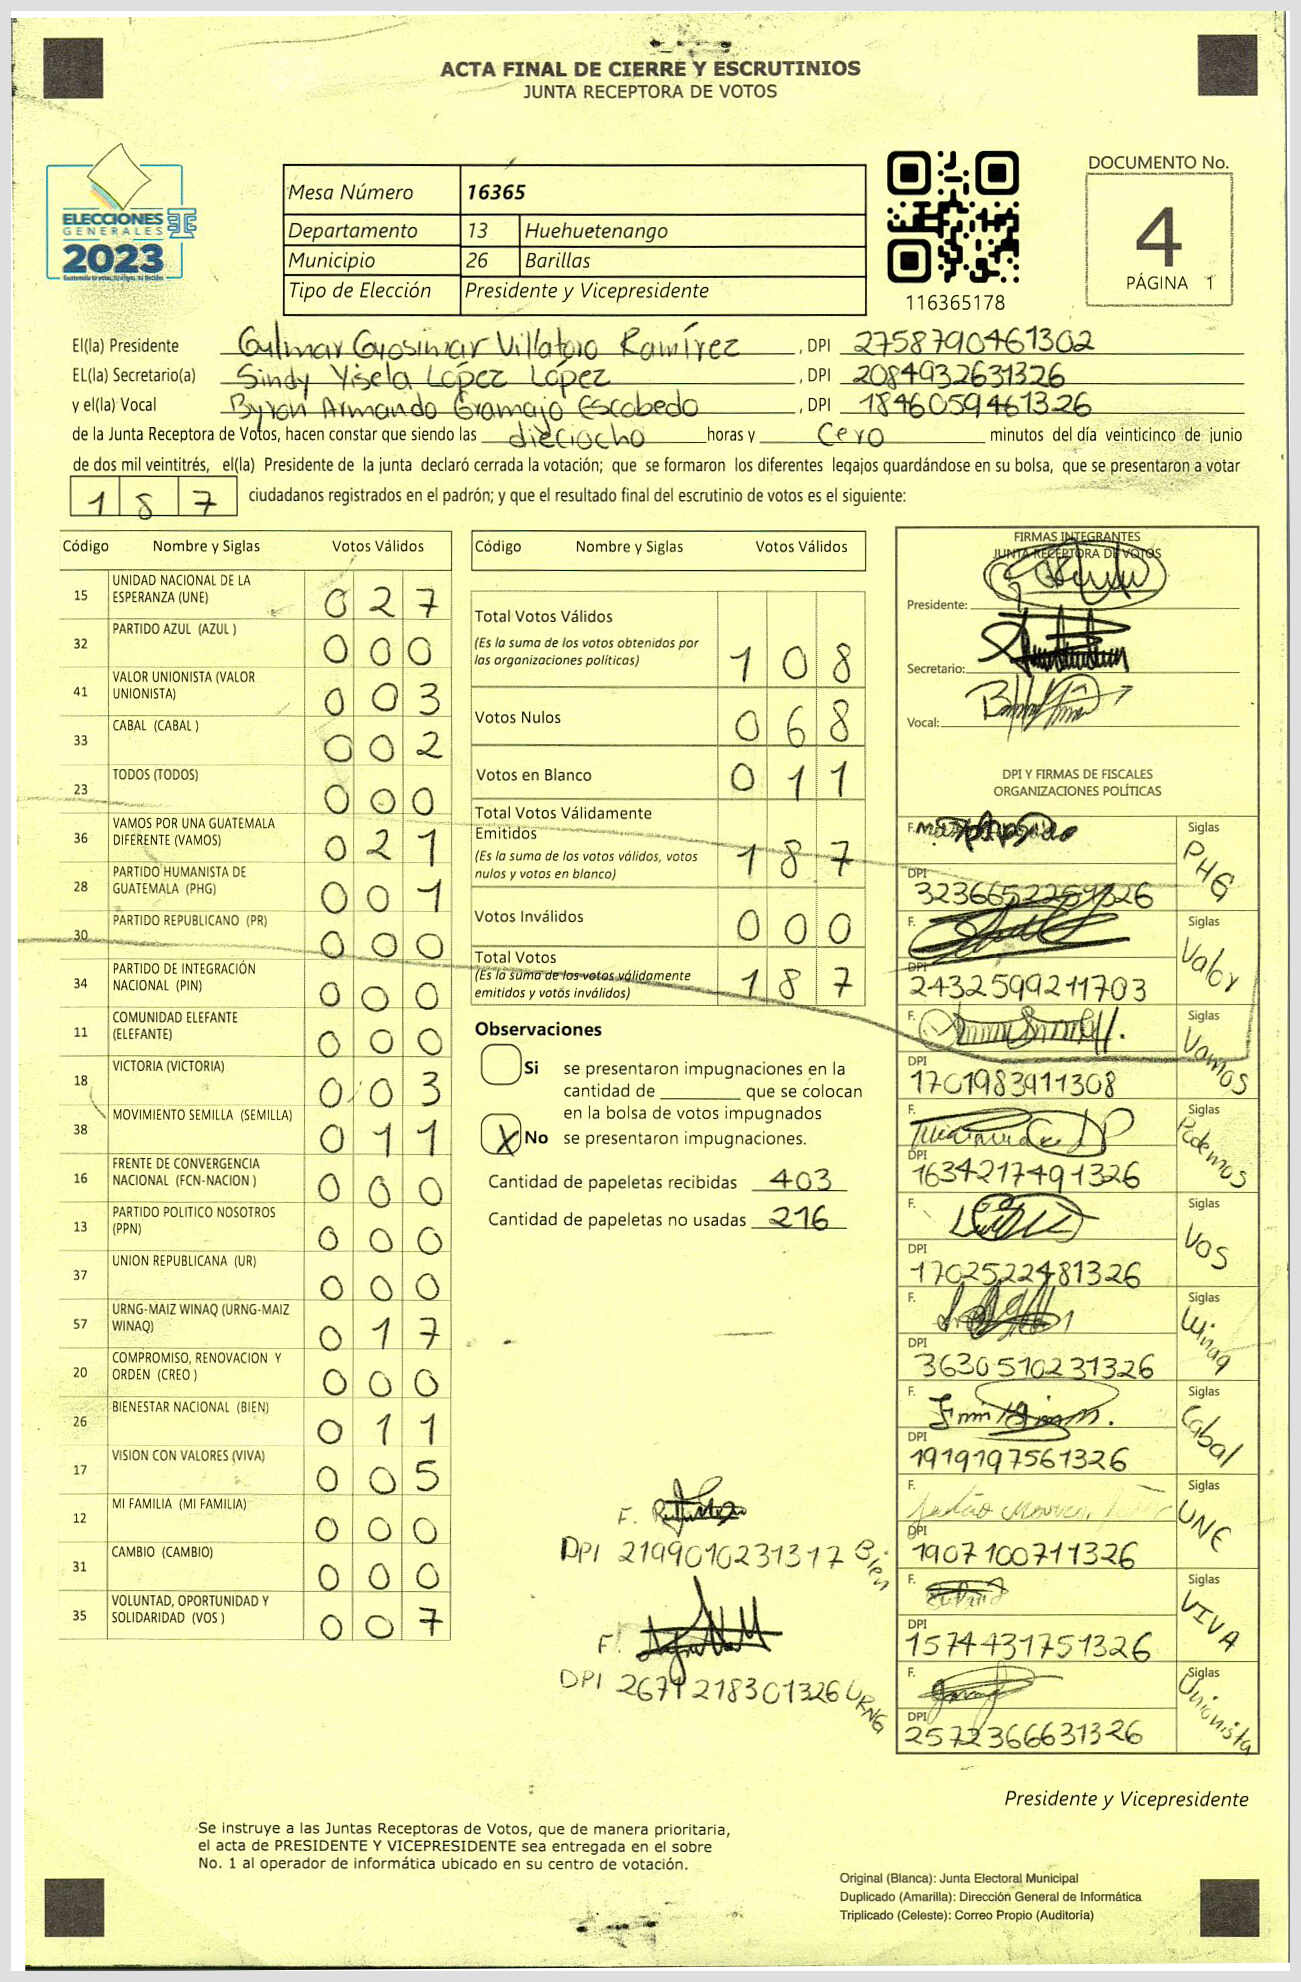 ACTA FINAL DE CIERRE Y ESCRUTINIOS
JUNTA RECEPTORA DE VOTOS
ELECCIONES
GENERALES
2023
Mesa Número 16365
Departamento 13 Huehuetenango
Municipio 26 Barillas
Tipo de Elección Presidente y Vicepresidente
116365178
DOCUMENTO No.
4
PÁGINA 1
El(la) Presidente Gylmar Gyosimar Villatoro Ramírez, DPI 2758790461302
EL(la) Secretario(a) Sindy Yisela López López, DPI 2084932631326
y el(la) Vocal Byron Armando Gramajo Escobedo, DPI 1846059461326
de la Junta Receptora de Votos, hacen constar que siendo las dieciocho horas y cero minutos del día veinticinco de junio
de dos mil veintitrés, el(la) Presidente de la junta declaró cerrada la votación; que se formaron los diferentes legajos guardándose en su bolsa, que se presentaron a votar
187 ciudadanos registrados en el padrón; y que el resultado final del escrutinio de votos es el siguiente:
Código Nombre y Siglas Votos Válidos
15 UNIDAD NACIONAL DE LA ESPERANZA (UNE) 027
32 PARTIDO AZUL (AZUL ) 000
41 VALOR UNIONISTA (VALOR UNIONISTA) 003
33 CABAL (CABAL ) 002
23 TODOS (TODOS) 000
36 VAMOS POR UNA GUATEMALA DIFERENTE (VAMOS) 021
28 PARTIDO HUMANISTA DE GUATEMALA (PHG) 001
30 PARTIDO REPUBLICANO (PR) 000
34 PARTIDO DE INTEGRACIÓN NACIONAL (PIN) 000
11 COMUNIDAD ELEFANTE (ELEFANTE) 000
18 VICTORIA (VICTORIA) 003
38 MOVIMIENTO SEMILLA (SEMILLA) 011
16 FRENTE DE CONVERGENCIA NACIONAL (FCN-NACION ) 000
13 PARTIDO POLITICO NOSOTROS (PPN) 000
37 UNION REPUBLICANA (UR) 000
57 URNG-MAIZ WINAQ (URNG-MAIZ WINAQ) 017
20 COMPROMISO, RENOVACION Y ORDEN (CREO ) 000
26 BIENESTAR NACIONAL (BIEN) 011
17 VISION CON VALORES (VIVA) 005
12 MI FAMILIA (MI FAMILIA) 000
31 CAMBIO (CAMBIO) 000
35 VOLUNTAD, OPORTUNIDAD Y SOLIDARIDAD (VOS ) 007
Código Nombre y Siglas Votos Válidos
Total Votos Válidos 108
(Es la suma de los votos obtenidos por
las organizaciones políticas)
Votos Nulos 068
Votos en Blanco 011
Total Votos Válidamente
Emitidos 187
(Es la suma de los votos válidos, votos
nulos y votos en blanco)
Votos Inválidos 000
Total Votos 187
(Es la suma de los votos válidamente
emitidos y votos inválidos)
Observaciones
Si se presentaron impugnaciones en la
cantidad de ________ que se colocan
en la bolsa de votos impugnados
X No se presentaron impugnaciones.
Cantidad de papeletas recibidas 403
Cantidad de papeletas no usadas 216
F.
DPI 2199010231317 Bien
F.
DPI 2671218301326 URNG
FIRMAS INTEGRANTES
JUNTA RECEPTORA DE VOTOS
Presidente:
Secretario:
Vocal:
DPI Y FIRMAS DE FISCALES
ORGANIZACIONES POLÍTICAS
F. Siglas PHG
DPI 3236652261326
F. Siglas Valor
DPI 2432599211703
F. Siglas Vamos
DPI 1701983911308
F. Siglas Podemos
DPI 1634217491326
F. Siglas VOS
DPI 1702522481326
F. Siglas Winaq
DPI 3630510231326
F. Siglas Cabal
DPI 1919197561326
F. Siglas UNE
DPI 1907100711326
F. Siglas VIVA
DPI 1574431751326
F. Siglas Unionista
DPI 2572366631326
Presidente y Vicepresidente
Se instruye a las Juntas Receptoras de Votos, que de manera prioritaria,
el acta de PRESIDENTE Y VICEPRESIDENTE sea entregada en el sobre
No. 1 al operador de informática ubicado en su centro de votación.
Original (Blanca): Junta Electoral Municipal
Duplicado (Amarilla): Dirección General de Informática
Triplicado (Celeste): Correo Propio (Auditoría)